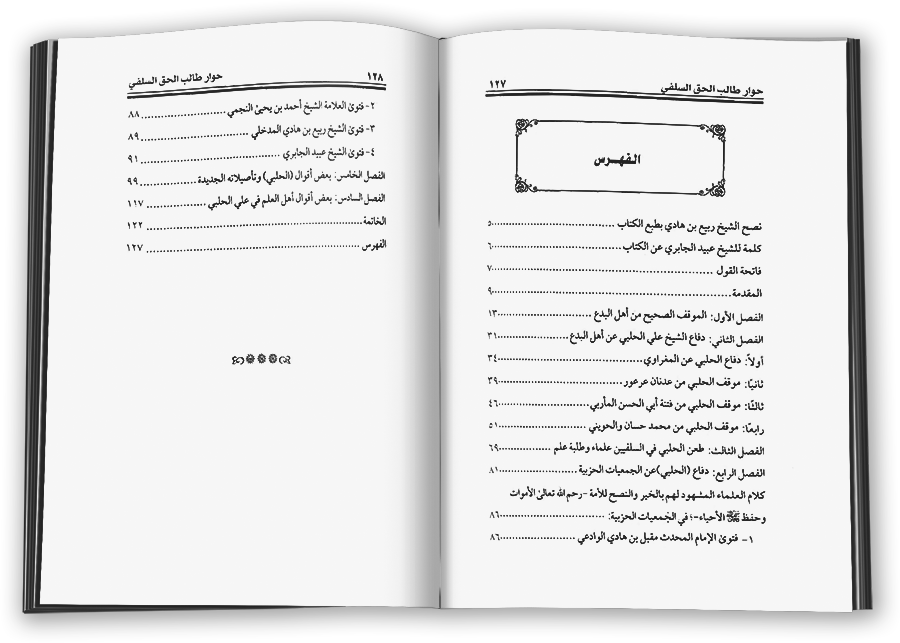 حوار طالب الحق السلفي ١٢٧
الفهرس
نصح الشيخ ربيع بن هادي بطبع الكتاب ............ ٥
كلمة للشيخ عبيد الجابري عن الكتاب ............ ٦
فاتحة القول ............ ٧
المقدمة ............ ٩
الفصل الأول: الموقف الصحيح من أهل البدع ............ ١٣
الفصل الثاني: دفاع الشيخ علي الحلبي عن أهل البدع ............ ٣١
أولاً: دفاع الحلبي عن المغراوي ............ ٣٤
ثانيًا: موقف الحلبي من عدنان عرعور ............ ٣٩
ثالثًا: موقف الحلبي من فتنة أبي الحسن المأربي ............ ٤٦
رابعًا: موقف الحلبي من محمد حسان والحويني ............ ٥١
الفصل الثالث: طعن الحلبي في السلفيين علماء وطلبة علم ............ ٦٩
الفصل الرابع: دفاع (الحلبي) عن الجمعيات الحزبية ............ ٨١
كلام العلماء المشهود لهم بالخير والنصح للأمة -رحم الله تعالى الأموات
وحفظ ﷺ الأحياء-؛ في الجمعيات الحزبية: ............ ٨٦
١- فتوى الإمام المحدث مقبل بن هادي الوادعي ............ ٨٦
١٢٨ حوار طالب الحق السلفي
٢- فتوى العلامة الشيخ أحمد بن يحيى النجمي ............ ٨٨
٣- فتوى الشيخ ربيع بن هادي المدخلي ............ ٨٩
٤- فتوى الشيخ عبيد الجابري ............ ٩١
الفصل الخامس: بعض أقوال (الحلبي) وتأصيلاته الجديدة ............ ٩٩
الفصل السادس: بعض أقوال أهل العلم في علي الحلبي ............ ١١٧
الخاتمة ............ ١٢٢
الفهرس ............ ١٢٧